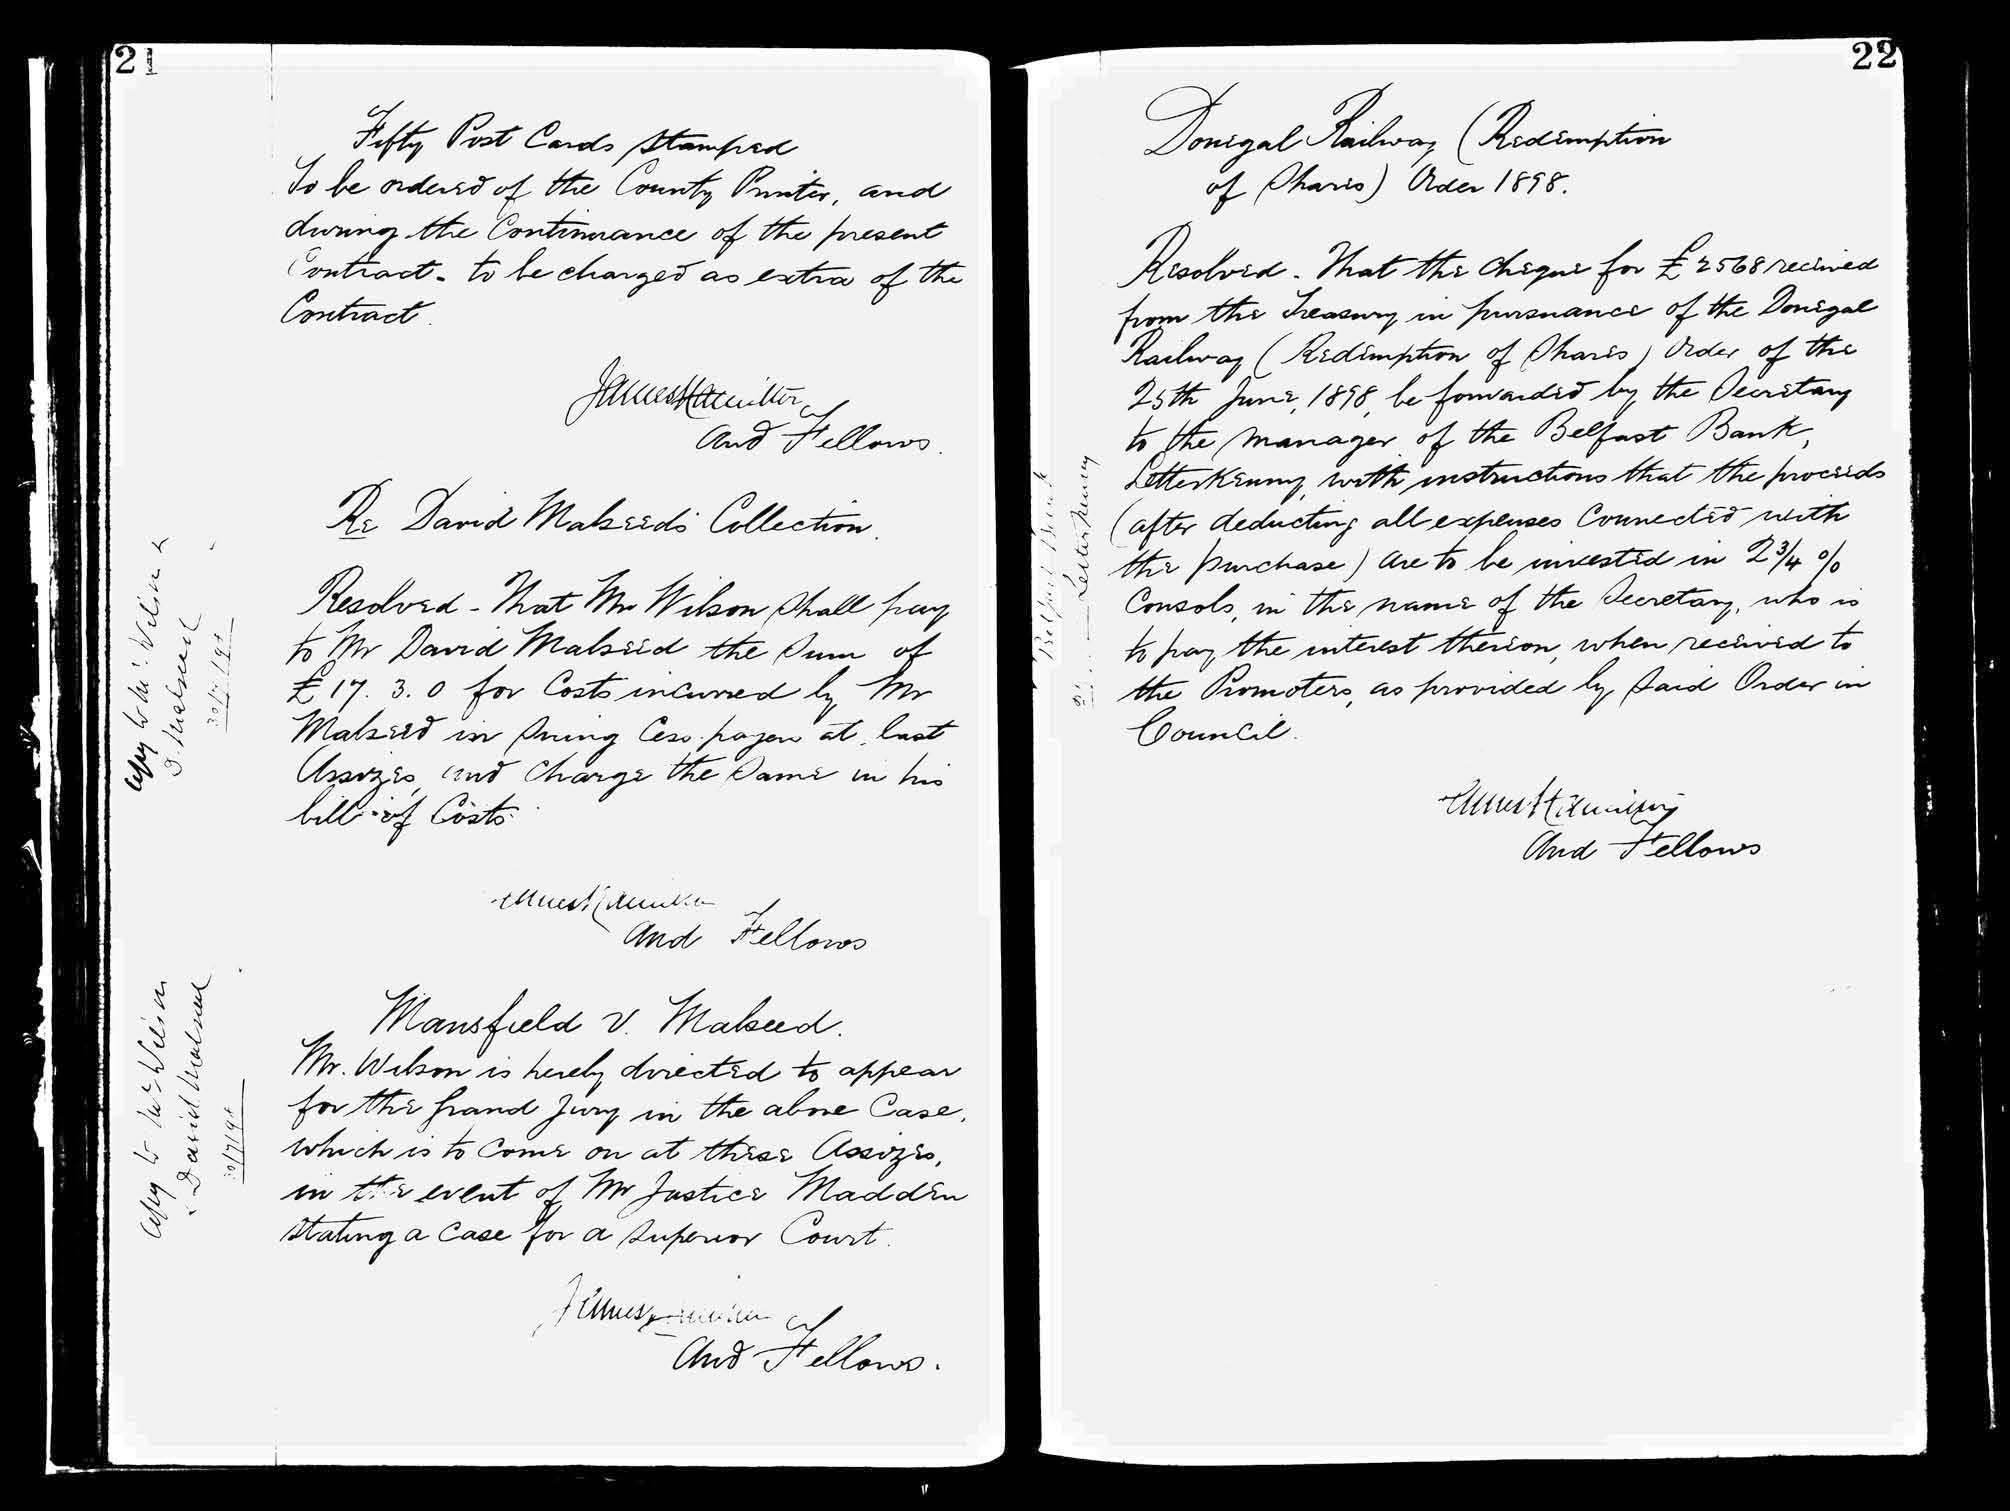 21
Fifty Post Cards stamped
To be ordered of the County Printer, and
during the Continuance of the present
Contract - to be charged as extra of the
Contract.
James Hamilton
and Fellows.
Re David Malseed's Collection.
Resolved - That Mr Wilson shall pay
to Mr David Malseed the sum of
£17. 3. 0 for Costs incurred by Mr
Malseed in suing Cess payer at last
Assizes, and charge the same in his
bill of Costs.
Copy to Mr Wilson &
D. Malseed
James Hamilton
and Fellows
Mansfield v. Malseed.
Mr. Wilson is hereby directed to appear
for the Grand Jury in the above Case,
which is to come on at these Assizes,
in the event of Mr Justice Madden
stating a case for a superior Court.
Copy to Mr Wilson
" David Malseed
30/7/98
James Hamilton
and Fellows.
22
Donegal Railway (Redemption
of Shares) Order 1898.
Resolved - That the cheque for £2568 received
from the Treasury in pursuance of the Donegal
Railway (Redemption of Shares) Order of the
25th June, 1898, be forwarded by the Secretary
to the manager of the Belfast Bank,
Letterkenny, with instructions that the proceeds
(after deducting all expenses connected with
the purchase) are to be invested in 2 3/4 %
Consols, in the name of the Secretary, who is
to pay the interest thereon, when received to
the Promoters, as provided by said Order in
Council.
Belfast Bank
Letterkenny
James Hamilton
and Fellows